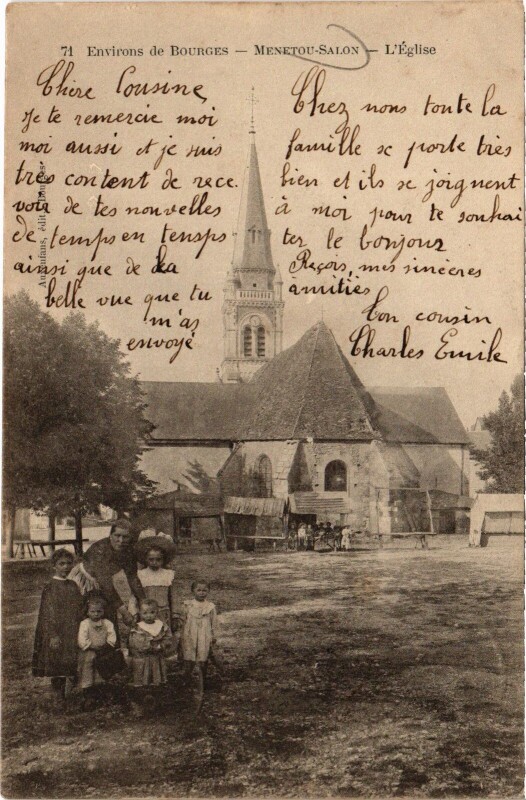 71 Environs de BOURGES — MENETOU-SALON — L'Église
Chère Cousine,
Je te remercie moi
moi aussi et je suis
très content de rece-
voir de tes nouvelles
de temps en temps
ainsi que de la
belle vue que tu
m'as
envoyé
Chez nous toute la
famille se porte très
bien et ils se joignent
à moi pour te souhai
ter le bonjour
Reçois, mes sincères
amitiés
Ton cousin
Charles Emile
édit.